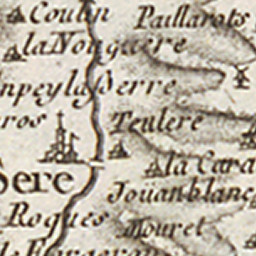 Coulin
Paillarots
la Nouguere
npeylasserre
ros
Teulere
la Cara
bere
Joüanblanc
Rogues
Mouret